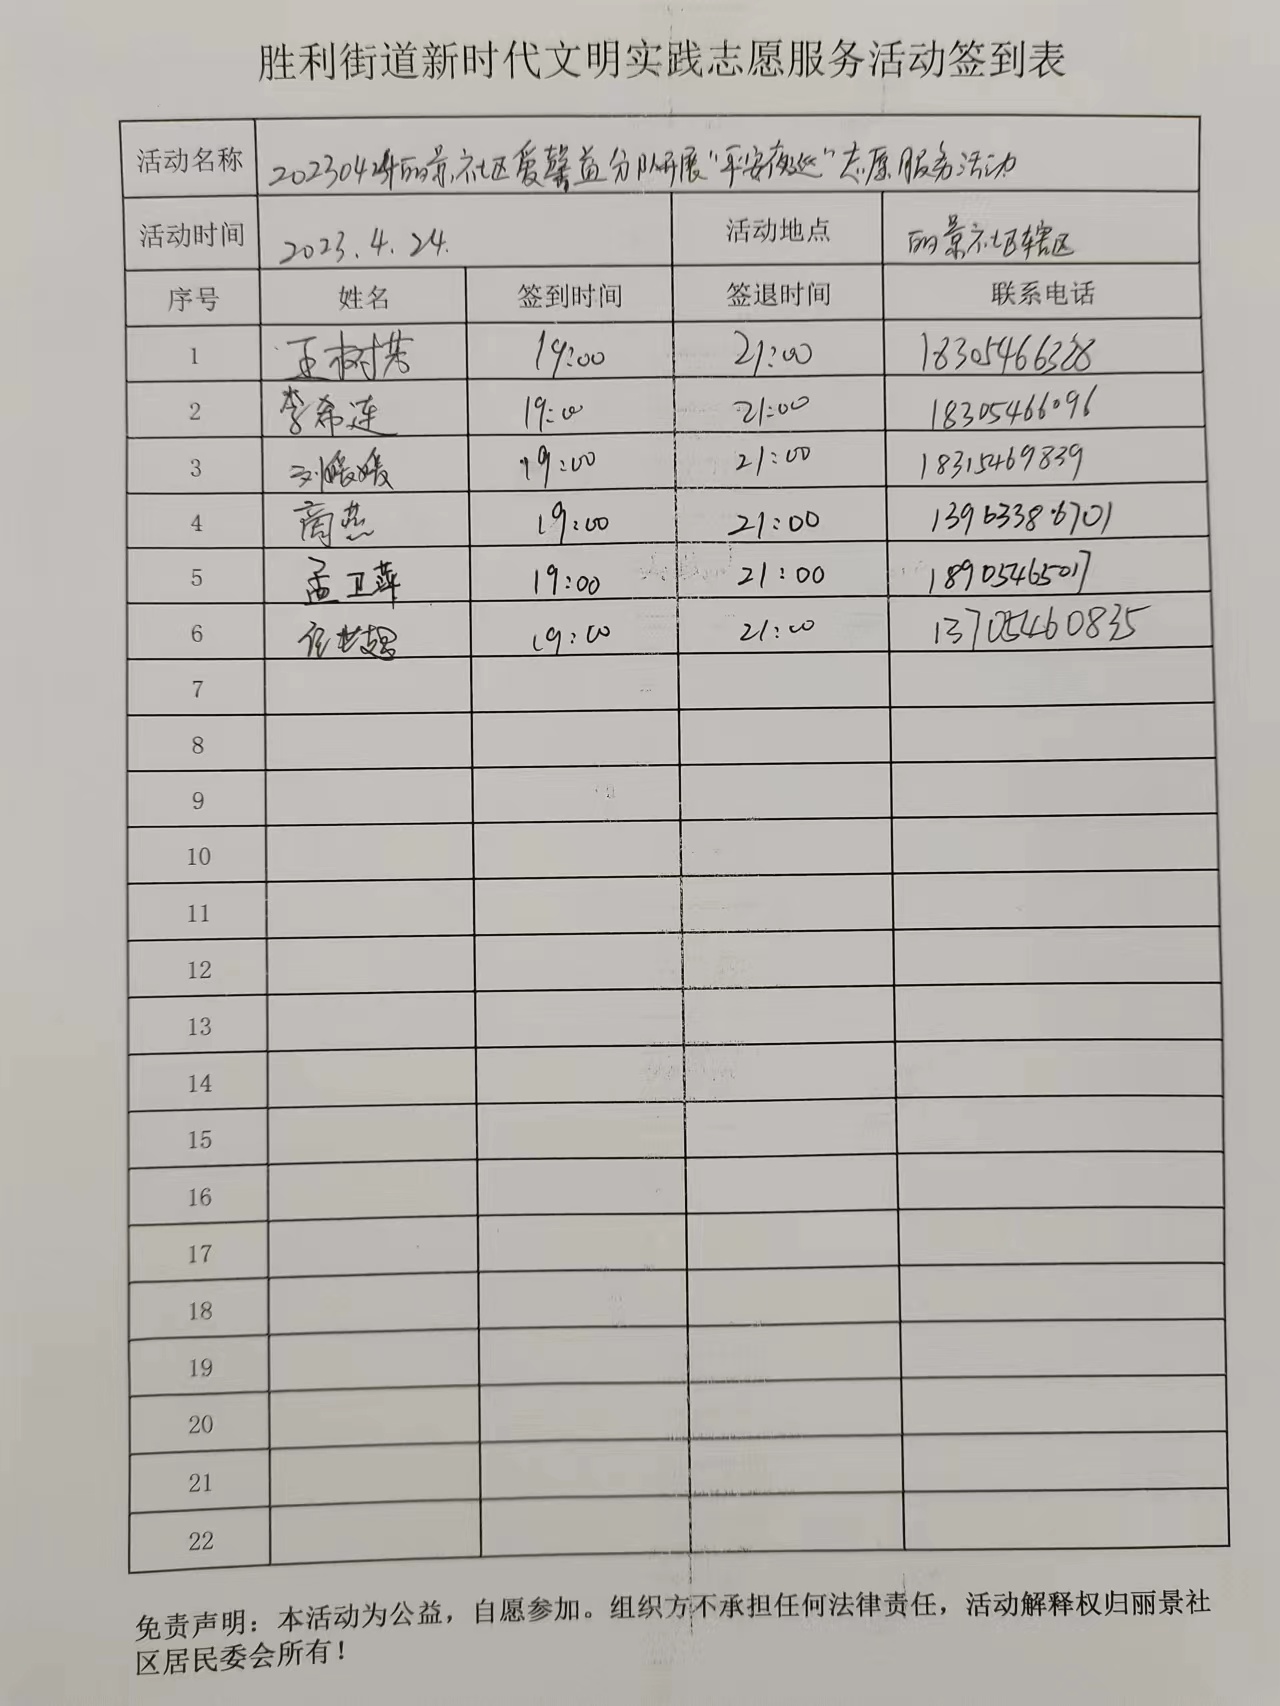 胜利街道新时代文明实践志愿服务活动签到表
活动名称 20230424丽景社区爱馨益分队开展“平安夜巡”志愿服务活动
活动时间 2023.4.24. 活动地点 丽景社区辖区
序号 姓名 签到时间 签退时间 联系电话
1 王树芳 19:00 21:00 18305466328
2 李希连 19:00 21:00 18305466096
3 刘媛媛 19:00 21:00 18315469839
4 商燕 19:00 21:00 13963386701
5 孟卫萍 19:00 21:00 18905465017
6 19:00 21:00 13705460835
7
8
9
10
11
12
13
14
15
16
17
18
19
20
21
22
免责声明：本活动为公益，自愿参加。组织方不承担任何法律责任，活动解释权归丽景社
区居民委会所有！